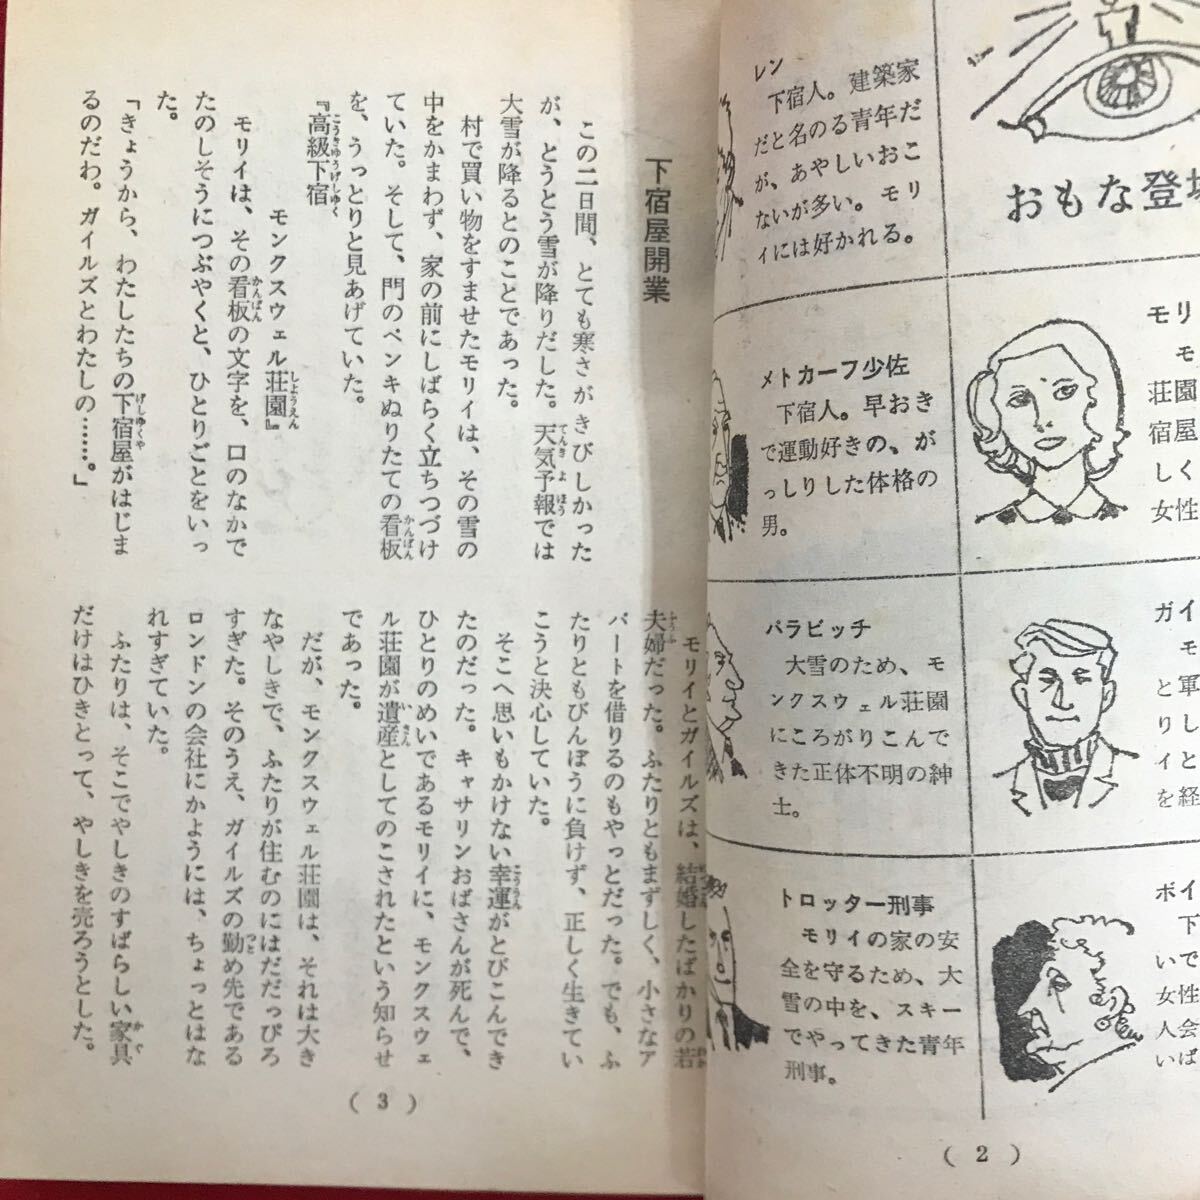 おもな登場
レン
下宿人。建築家
だと名のる青年だ
が、あやしいおこ
ないが多い。モリ
ィには好かれる。
モリ
モ
荘園
宿屋
しく
女性
メトカーフ少佐
下宿人。早おき
で運動好きの、が
っしりした体格の
男。
ガイ
モ
と軍
りし
イと
を経
パラビッチ
大雪のため、モ
ンクスウェル荘園
にころがりこんで
きた正体不明の紳
士。
ボイ
下
いで
女性
人会
いば
トロッター刑事
モリイの家の安
全を守るため、大
雪の中を、スキー
でやってきた青年
刑事。
( 2 )
下宿屋開業
この二日間、とても寒さがきびしかった
が、とうとう雪が降りだした。天気予報では
大雪が降るとのことであった。
村で買い物をすませたモリイは、その雪の
中をかまわず、家の前にしばらく立ちつづけ
ていた。そして、門のペンキぬりたての看板
を、うっとりと見あげていた。
『高級下宿
モンクスウェル荘園』
モリイは、その看板の文字を、口のなかで
たのしそうにつぶやくと、ひとりごとをいっ
た。
「きょうから、わたしたちの下宿屋がはじま
るのだわ。ガイルズとわたしの……。」
モリイとガイルズは、結婚したばかりの若
夫婦だった。ふたりともまずしく、小さなア
パートを借りるのもやっとだった。でも、ふ
たりともびんぼうに負けず、正しく生きてい
こうと決心していた。
そこへ思いもかけない幸運がとびこんでき
たのだった。キャサリンおばさんが死んで、
ひとりのめいであるモリイに、モンクスウェ
ル荘園が遺産としてのこされたという知らせ
であった。
だが、モンクスウェル荘園は、それは大き
なやしきで、ふたりが住むのにはだだっぴろ
すぎた。そのうえ、ガイルズの勤め先である
ロンドンの会社にかようには、ちょっとはな
れすぎていた。
ふたりは、そこでやしきのすばらしい家具
だけはひきとって、やしきを売ろうとした。
( 3 )